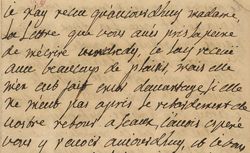 Je n'ay receu quaujourdhuy madame
la lettre que vous aves pris la peine
de mécrire vendredy, je lay receu
avec beaucoup de plaisir, mais elle
men eut fait encor davantage si elle
ne meut pas apris le retardement de
vostre retour a sceaux, j'avois esperé
vous y aujourdhuy, et